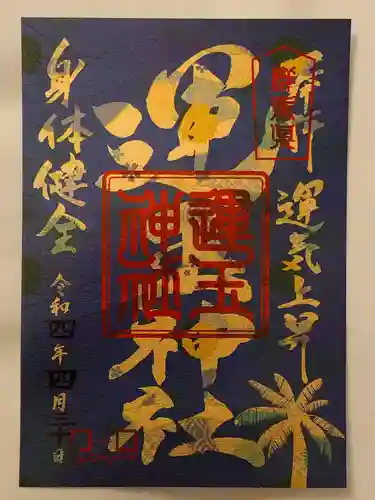 奉拝
群馬県
運気上昇
運玉神社
運玉
神社
身体健全
令和四年四月三十日